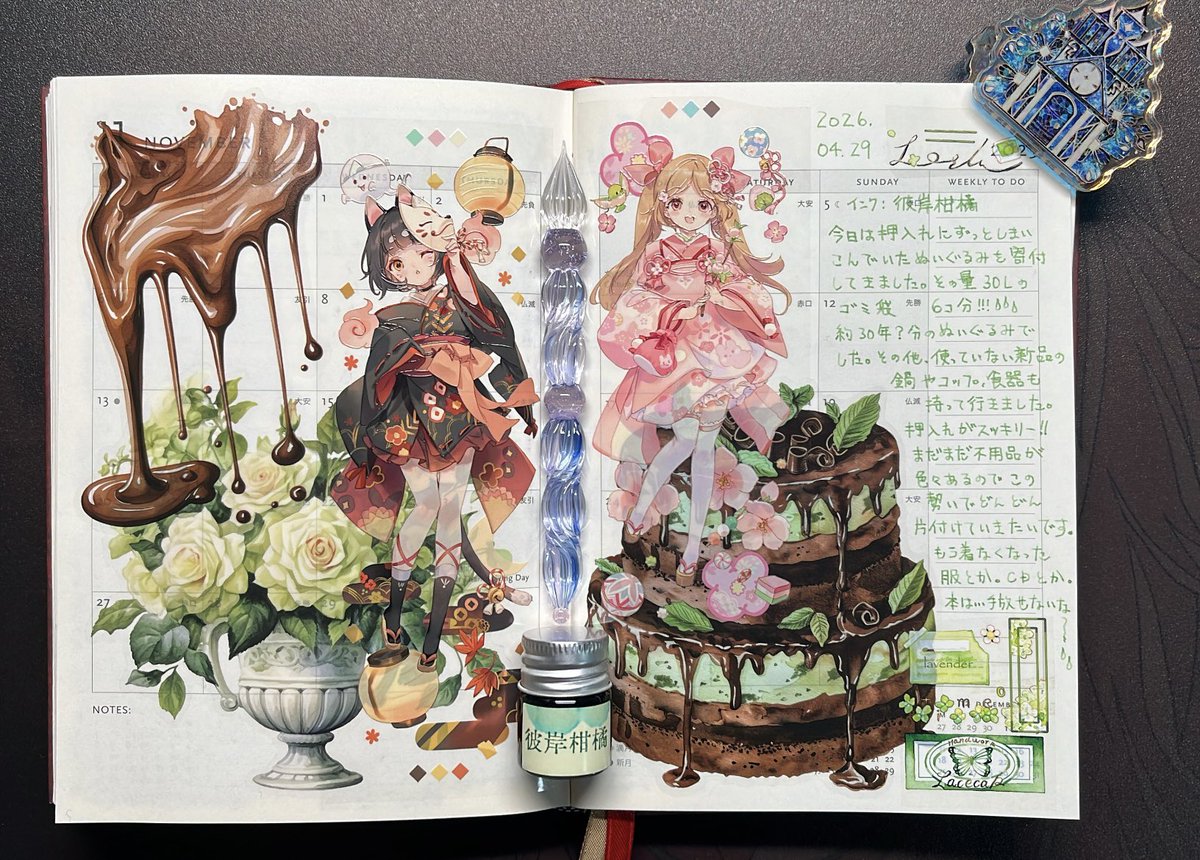 NOVEMBER
THURSDAY
先負
1
2
友引
8
仏滅
13
大安
15
友引
27
NOTES:
彼岸柑橘
2026.
04.29
SUNDAY
WEEKLY TO DO
大安
5
インク:彼岸柑橘
今日は押入れにずっとしまい
こんでいたぬいぐるみを寄付
してきました。その量30Lの
赤口
12
先勝
ゴミ袋 6コ分!!!
約30年?分のぬいぐるみで
した。その他、使っていない新品の
鍋やコップ、食器も
仏滅
持って行きました。
押入れがスッキリー!!
まだまだ不用品が
色々あるのでこの
大安
勢いでどんどん
片付けていきたいです。
もう着なくなった
服とか。CDとか。
本は…手放せないな
lavender
27 28 29 30
Handwork
Lacecafe
新月